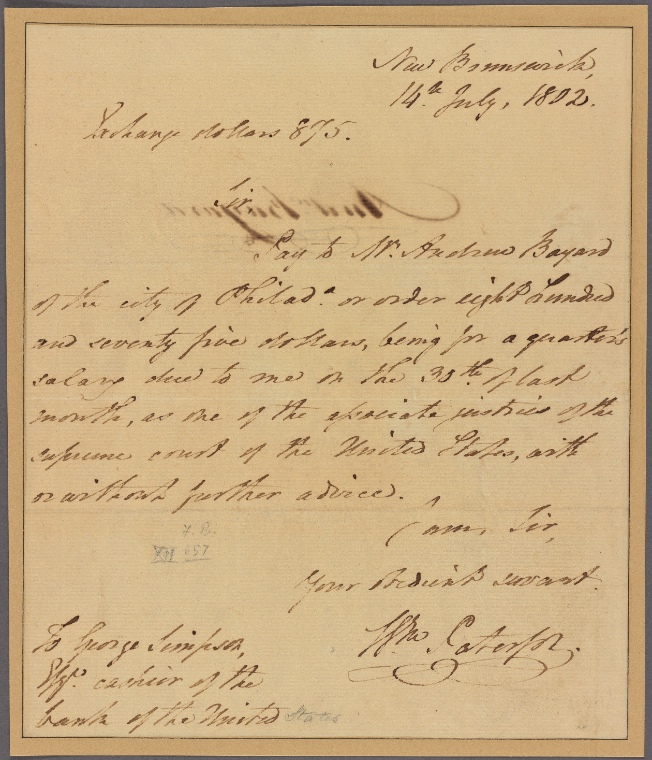 New Brunswick,
14th July, 1802.
Exchange dollars 875.
Sir,
Pay to Mr. Andrew Bayard
of the city of Philada. or order eight hundred
and seventy five dollars, being for a quarter's
salary due to me on the 30th. of last
month, as one of the associate justices of the
supreme court of the United States, with
or without further advice.
I am, Sir,
Your obedient servant.
Wm. Paterson.
To George Simpson,
Esqr. cashier of the
bank of the United States